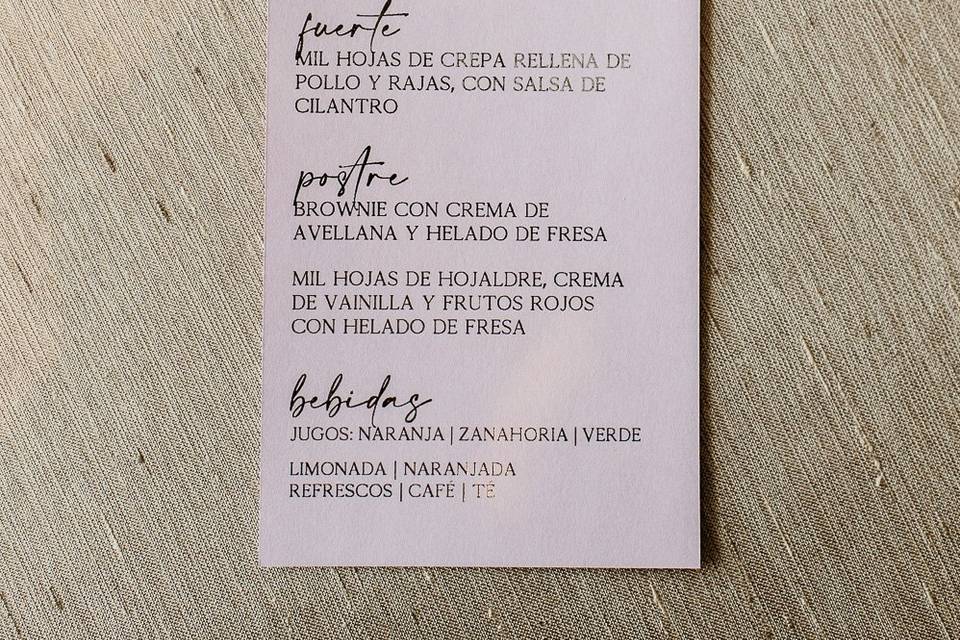 fuerte
MIL HOJAS DE CREPA RELLENA DE
POLLO Y RAJAS, CON SALSA DE
CILANTRO
postre
BROWNIE CON CREMA DE
AVELLANA Y HELADO DE FRESA
MIL HOJAS DE HOJALDRE, CREMA
DE VAINILLA Y FRUTOS ROJOS
CON HELADO DE FRESA
bebidas
JUGOS: NARANJA | ZANAHORIA | VERDE
LIMONADA | NARANJADA
REFRESCOS | CAFÉ | TÉ